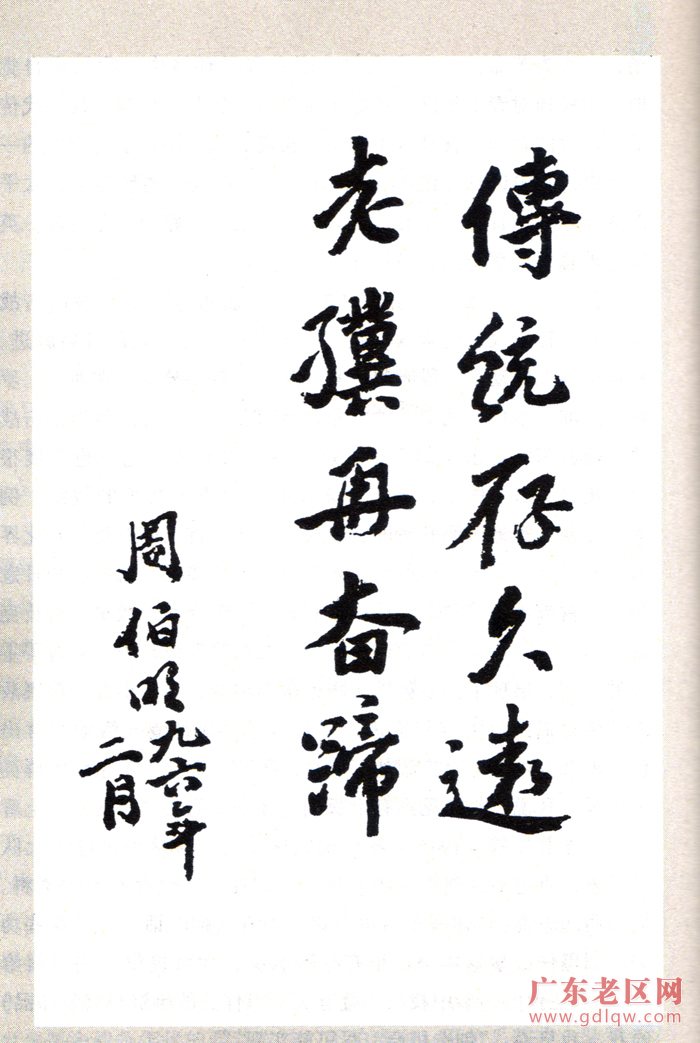 傳统存久遠
老骥再奋蹄
周伯明九六年
二月
广东老区网
www.gdlqw.com